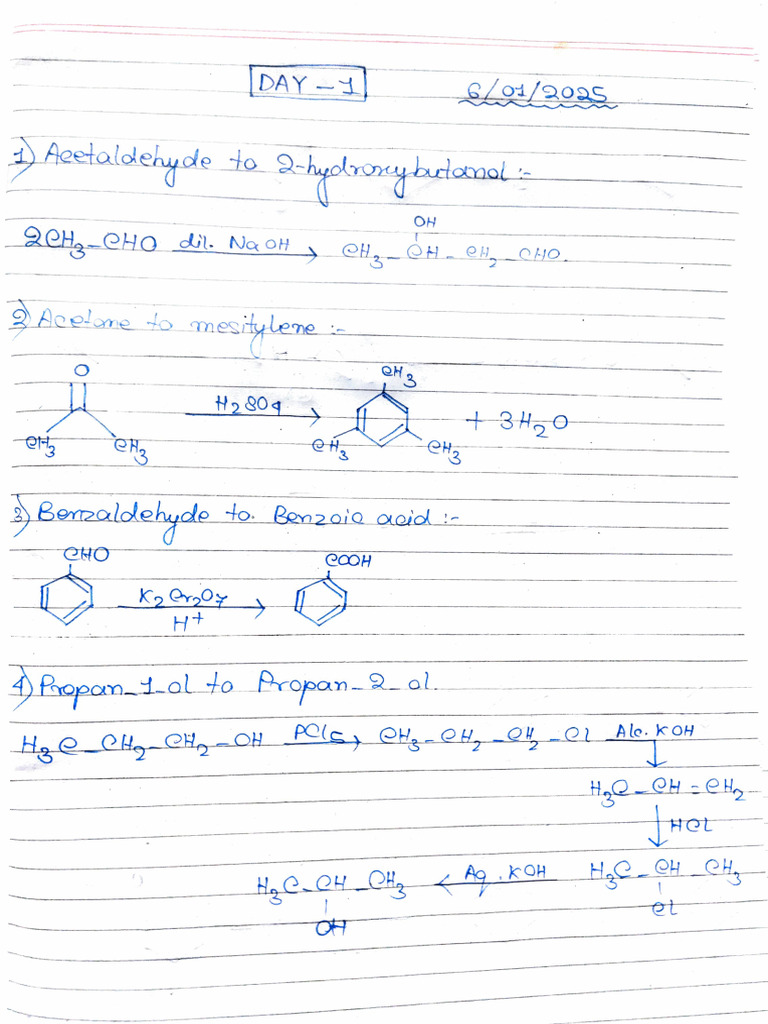 DAY - 1
6/01/2025
1) Acetaldehyde to 2-hydroxybutanol :-
OH
2CH3-CHO dil. NaOH → CH3-CH-CH2-CHO.
2) Acetone to mesitylene :-
O
CH3 CH3 H2SO4 → CH3 CH3 CH3 + 3H2O
3) Benzaldehyde to Benzoic acid :-
CHO COOH
K2Cr2O7 →
H+
4) Propan-1-ol to Propan-2-ol.
H3C-CH2-CH2-OH PCl5 → CH3-CH2-CH2-Cl Alc. KOH
↓
H3C-CH=CH2
↓ HCl
H3C-CH-CH3 ← Aq. KOH H3C-CH-CH3
OH Cl